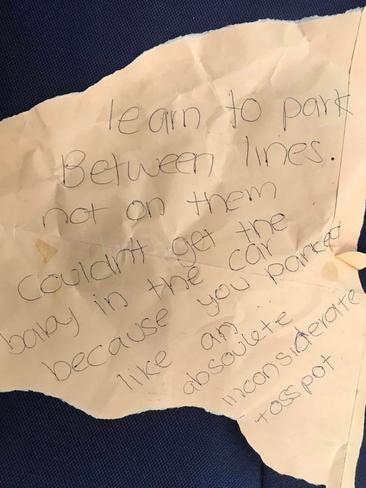 learn to park
Between lines.
not on them
Couldn't get the
baby in the car
because you parked
like an
absoulete
inconsiderate
tosspot